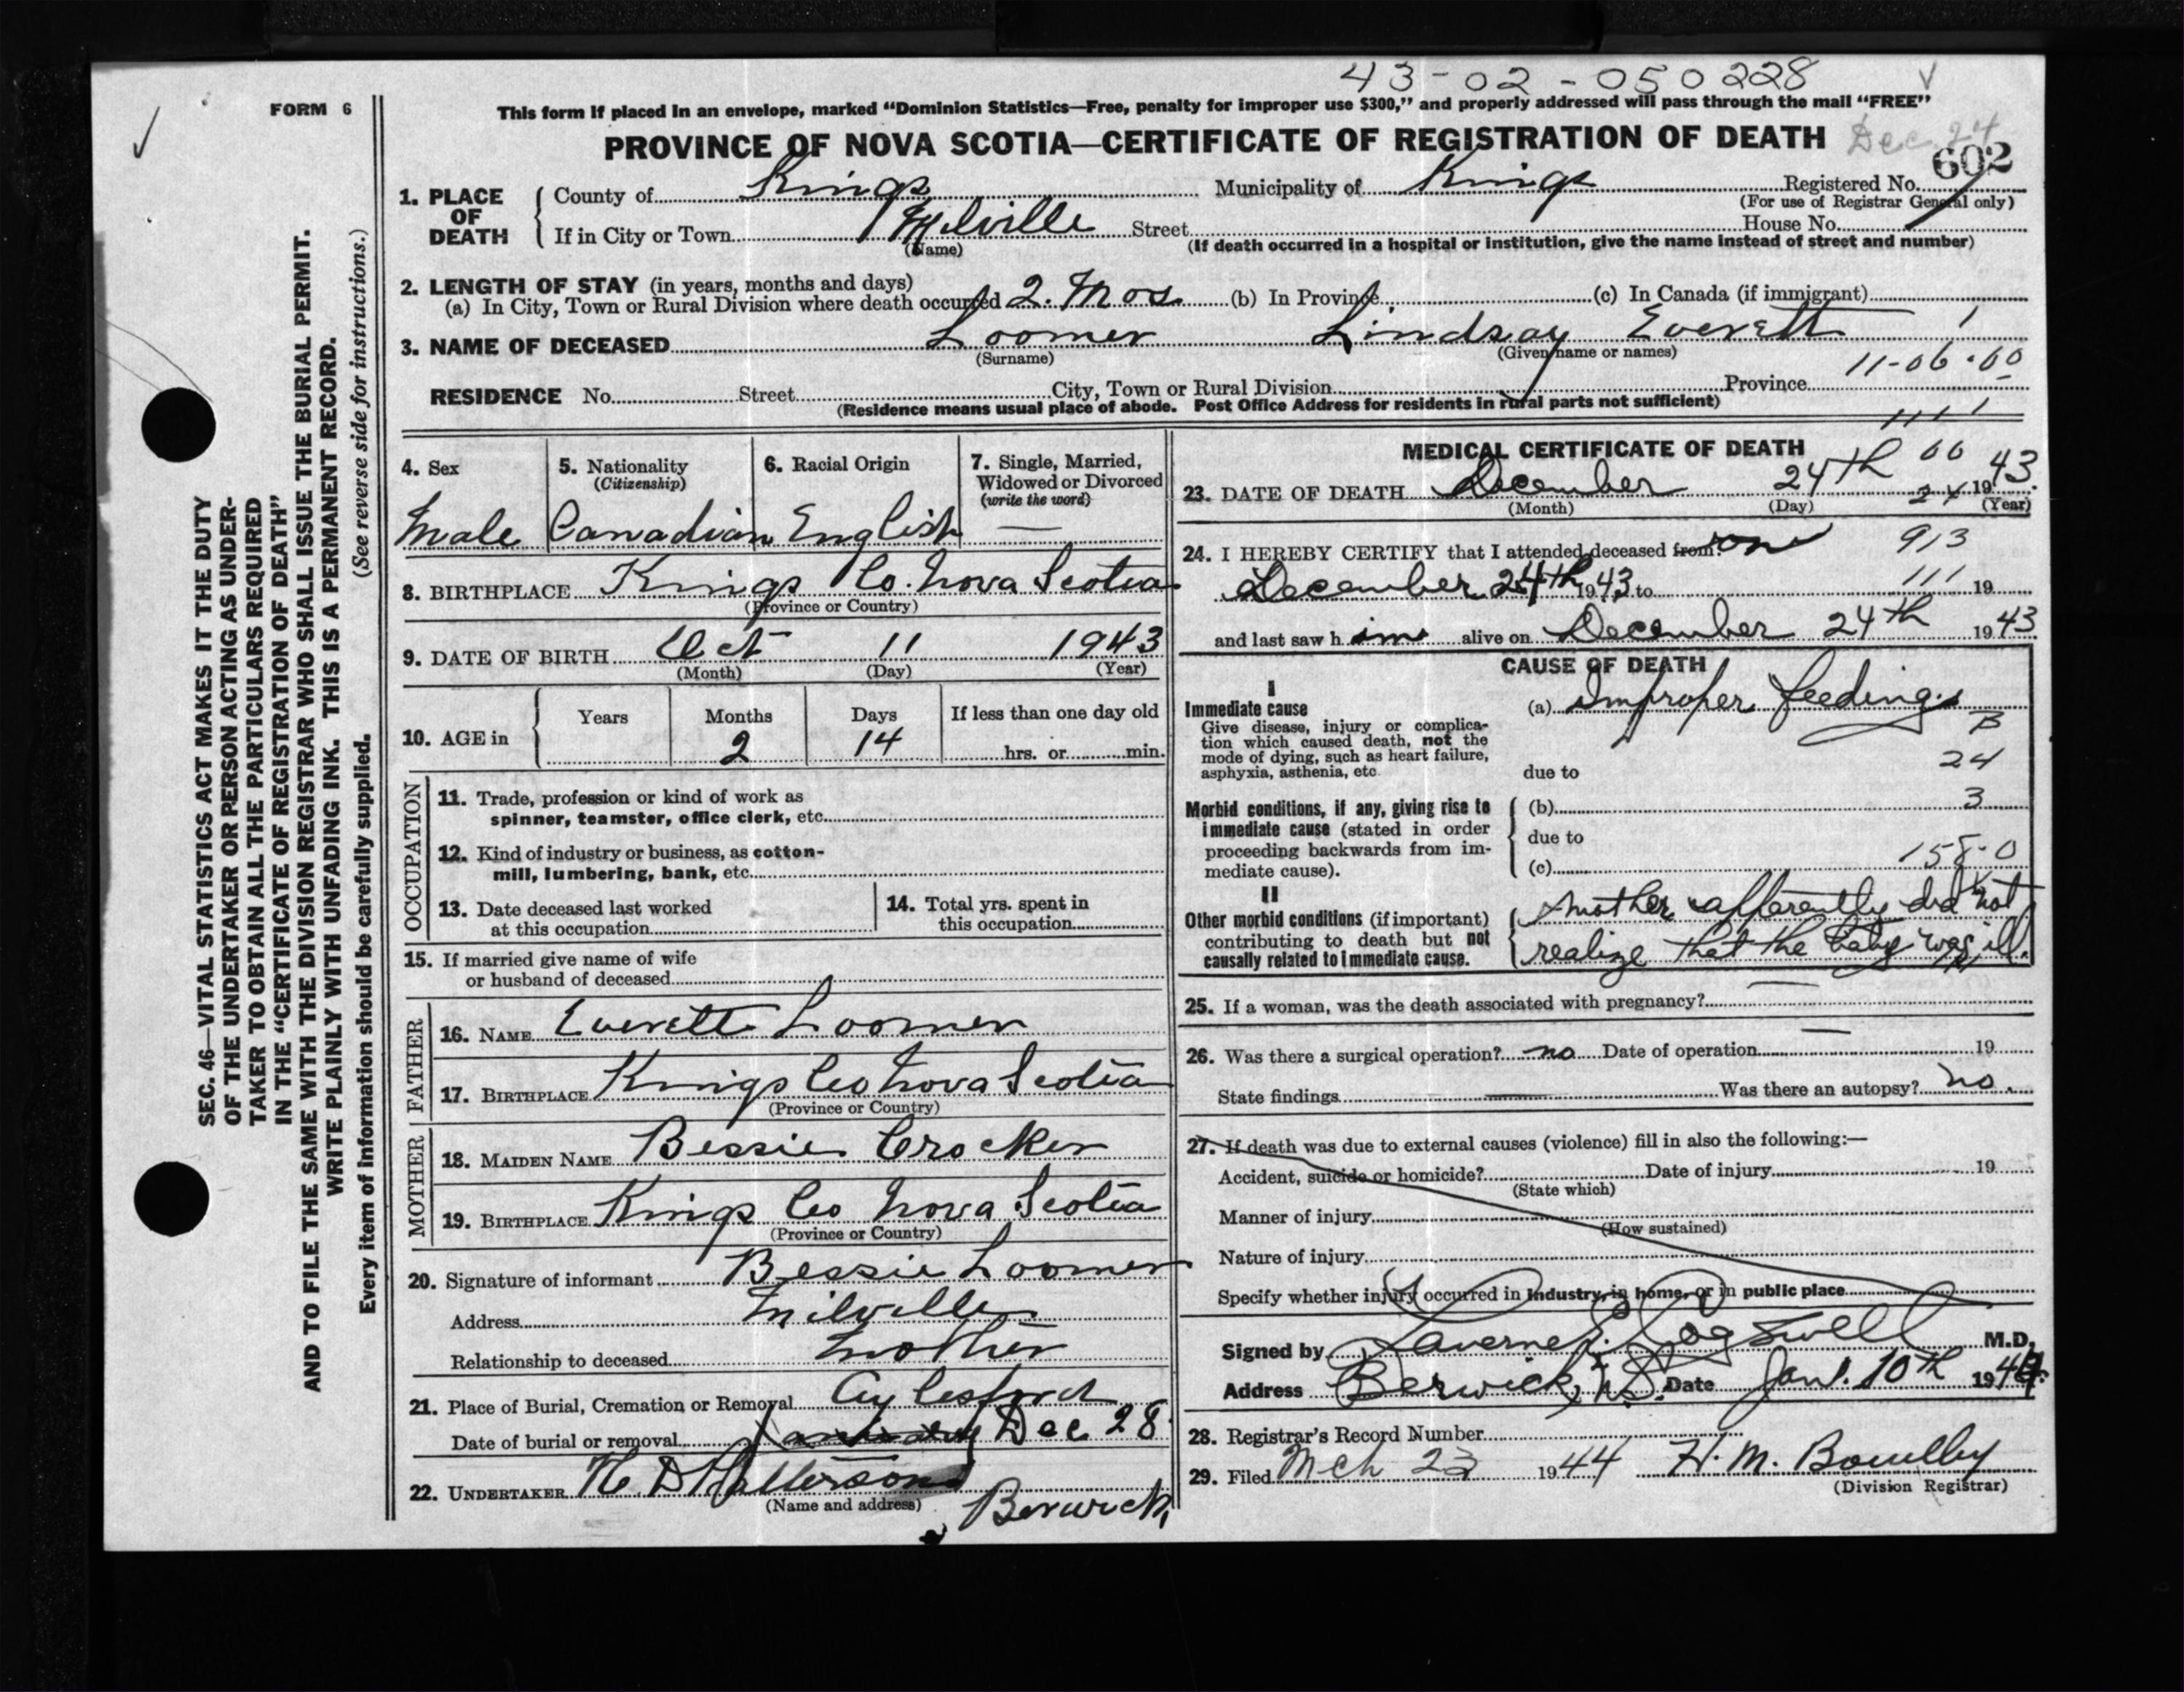 43-02-050228
FORM 6
This form if placed in an envelope, marked “Dominion Statistics—Free, penalty for improper use $300,” and properly addressed will pass through the mail “FREE”
PROVINCE OF NOVA SCOTIA—CERTIFICATE OF REGISTRATION OF DEATH
Dec 24
602
1. PLACE OF DEATH
County of Kings Municipality of Kings Registered No.
(For use of Registrar General only)
If in City or Town Melville Street House No.
(Name) (If death occurred in a hospital or institution, give the name instead of street and number)
2. LENGTH OF STAY (in years, months and days)
(a) In City, Town or Rural Division where death occurred 2. Mos (b) In Province (c) In Canada (if immigrant)
3. NAME OF DECEASED Loomer Lindsay Everett 1
(Surname) (Given name or names)
11-06-00
RESIDENCE No. Street City, Town or Rural Division Province
(Residence means usual place of abode. Post Office Address for residents in rural parts not sufficient)
SEC. 46—VITAL STATISTICS ACT MAKES IT THE DUTY
OF THE UNDERTAKER OR PERSON ACTING AS UNDER-
TAKER TO OBTAIN ALL THE PARTICULARS REQUIRED
IN THE “CERTIFICATE OF REGISTRATION OF DEATH”
AND TO FILE THE SAME WITH THE DIVISION REGISTRAR WHO SHALL ISSUE THE BURIAL PERMIT.
WRITE PLAINLY WITH UNFADING INK. THIS IS A PERMANENT RECORD.
Every item of information should be carefully supplied. (See reverse side for instructions.)
4. Sex
Male
5. Nationality
(Citizenship)
Canadian
6. Racial Origin
English
7. Single, Married,
Widowed or Divorced
(write the word)
—
8. BIRTHPLACE Kings Co. Nova Scotia
(Province or Country)
9. DATE OF BIRTH Oct 11 1943
(Month) (Day) (Year)
10. AGE in
Years Months Days If less than one day old
2 14 hrs. or min.
OCCUPATION
11. Trade, profession or kind of work as
spinner, teamster, office clerk, etc.
12. Kind of industry or business, as cotton-
mill, lumbering, bank, etc.
13. Date deceased last worked
at this occupation
14. Total yrs. spent in
this occupation
15. If married give name of wife
or husband of deceased
FATHER
16. NAME Everett Loomer
17. BIRTHPLACE Kings Co Nova Scotia
(Province or Country)
MOTHER
18. MAIDEN NAME Bessie Crocker
19. BIRTHPLACE Kings Co Nova Scotia
(Province or Country)
20. Signature of informant Bessie Loomer
Address Milville
Relationship to deceased Mother
21. Place of Burial, Cremation or Removal Aylesford
Date of burial or removal Dec 28
22. UNDERTAKER
(Name and address) Berwick
MEDICAL CERTIFICATE OF DEATH
23. DATE OF DEATH December 24th 1943.
(Month) (Day) (Year)
24. I HEREBY CERTIFY that I attended deceased from: on
913
December 24th 1943 to 19
111
and last saw him alive on December 24th 1943
CAUSE OF DEATH
I
Immediate cause
Give disease, injury or complica-
tion which caused death, not the
mode of dying, such as heart failure,
asphyxia, asthenia, etc.
(a) Improper feeding.
B
24
due to
Morbid conditions, if any, giving rise to
immediate cause (stated in order
proceeding backwards from im-
mediate cause).
(b) 3
due to
(c) 158-0
II
Other morbid conditions (if important)
contributing to death but not
causally related to immediate cause.
Mother apparently did not
realize that the baby was ill.
25. If a woman, was the death associated with pregnancy? —
26. Was there a surgical operation? no Date of operation — 19
State findings — Was there an autopsy? no.
27. If death was due to external causes (violence) fill in also the following:—
Accident, suicide or homicide? Date of injury 19
(State which)
Manner of injury
(How sustained)
Nature of injury
Specify whether injury occurred in industry, in home, or in public place
Signed by Cogswell M.D.
Address Berwick, N.S. Date Jan. 10th 1944.
28. Registrar's Record Number
29. Filed Mch 23 1944 H. M.
(Division Registrar)